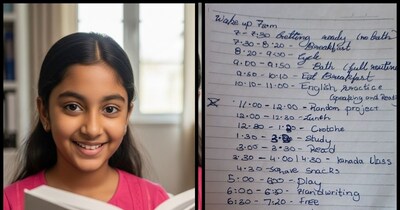 Wake up 7am
7 - 7:30 - Getting ready (no bath)
7-30 - 8:20 - Breakfast
8:20 - 9:00 - Cycle
9.00 - 9:50 - Bath (full routine)
9.50 - 10:10 - Eat Breakfast
10:10 - 11:00 - English practice
(speaking and Read
11:00 - 12:00 - Random project
12:00 - 12:30 - Lunch
12:30 - 1:30 -
1:30 - Study
3:00 - 3:30 - Read
3:30 - 4:00 | 4:30 - Kanada Class
4:30 - Snacks
5:00 - 6:00 - Play
6:00 - 6:30 - Handwriting
6:30 - 7:20 - free